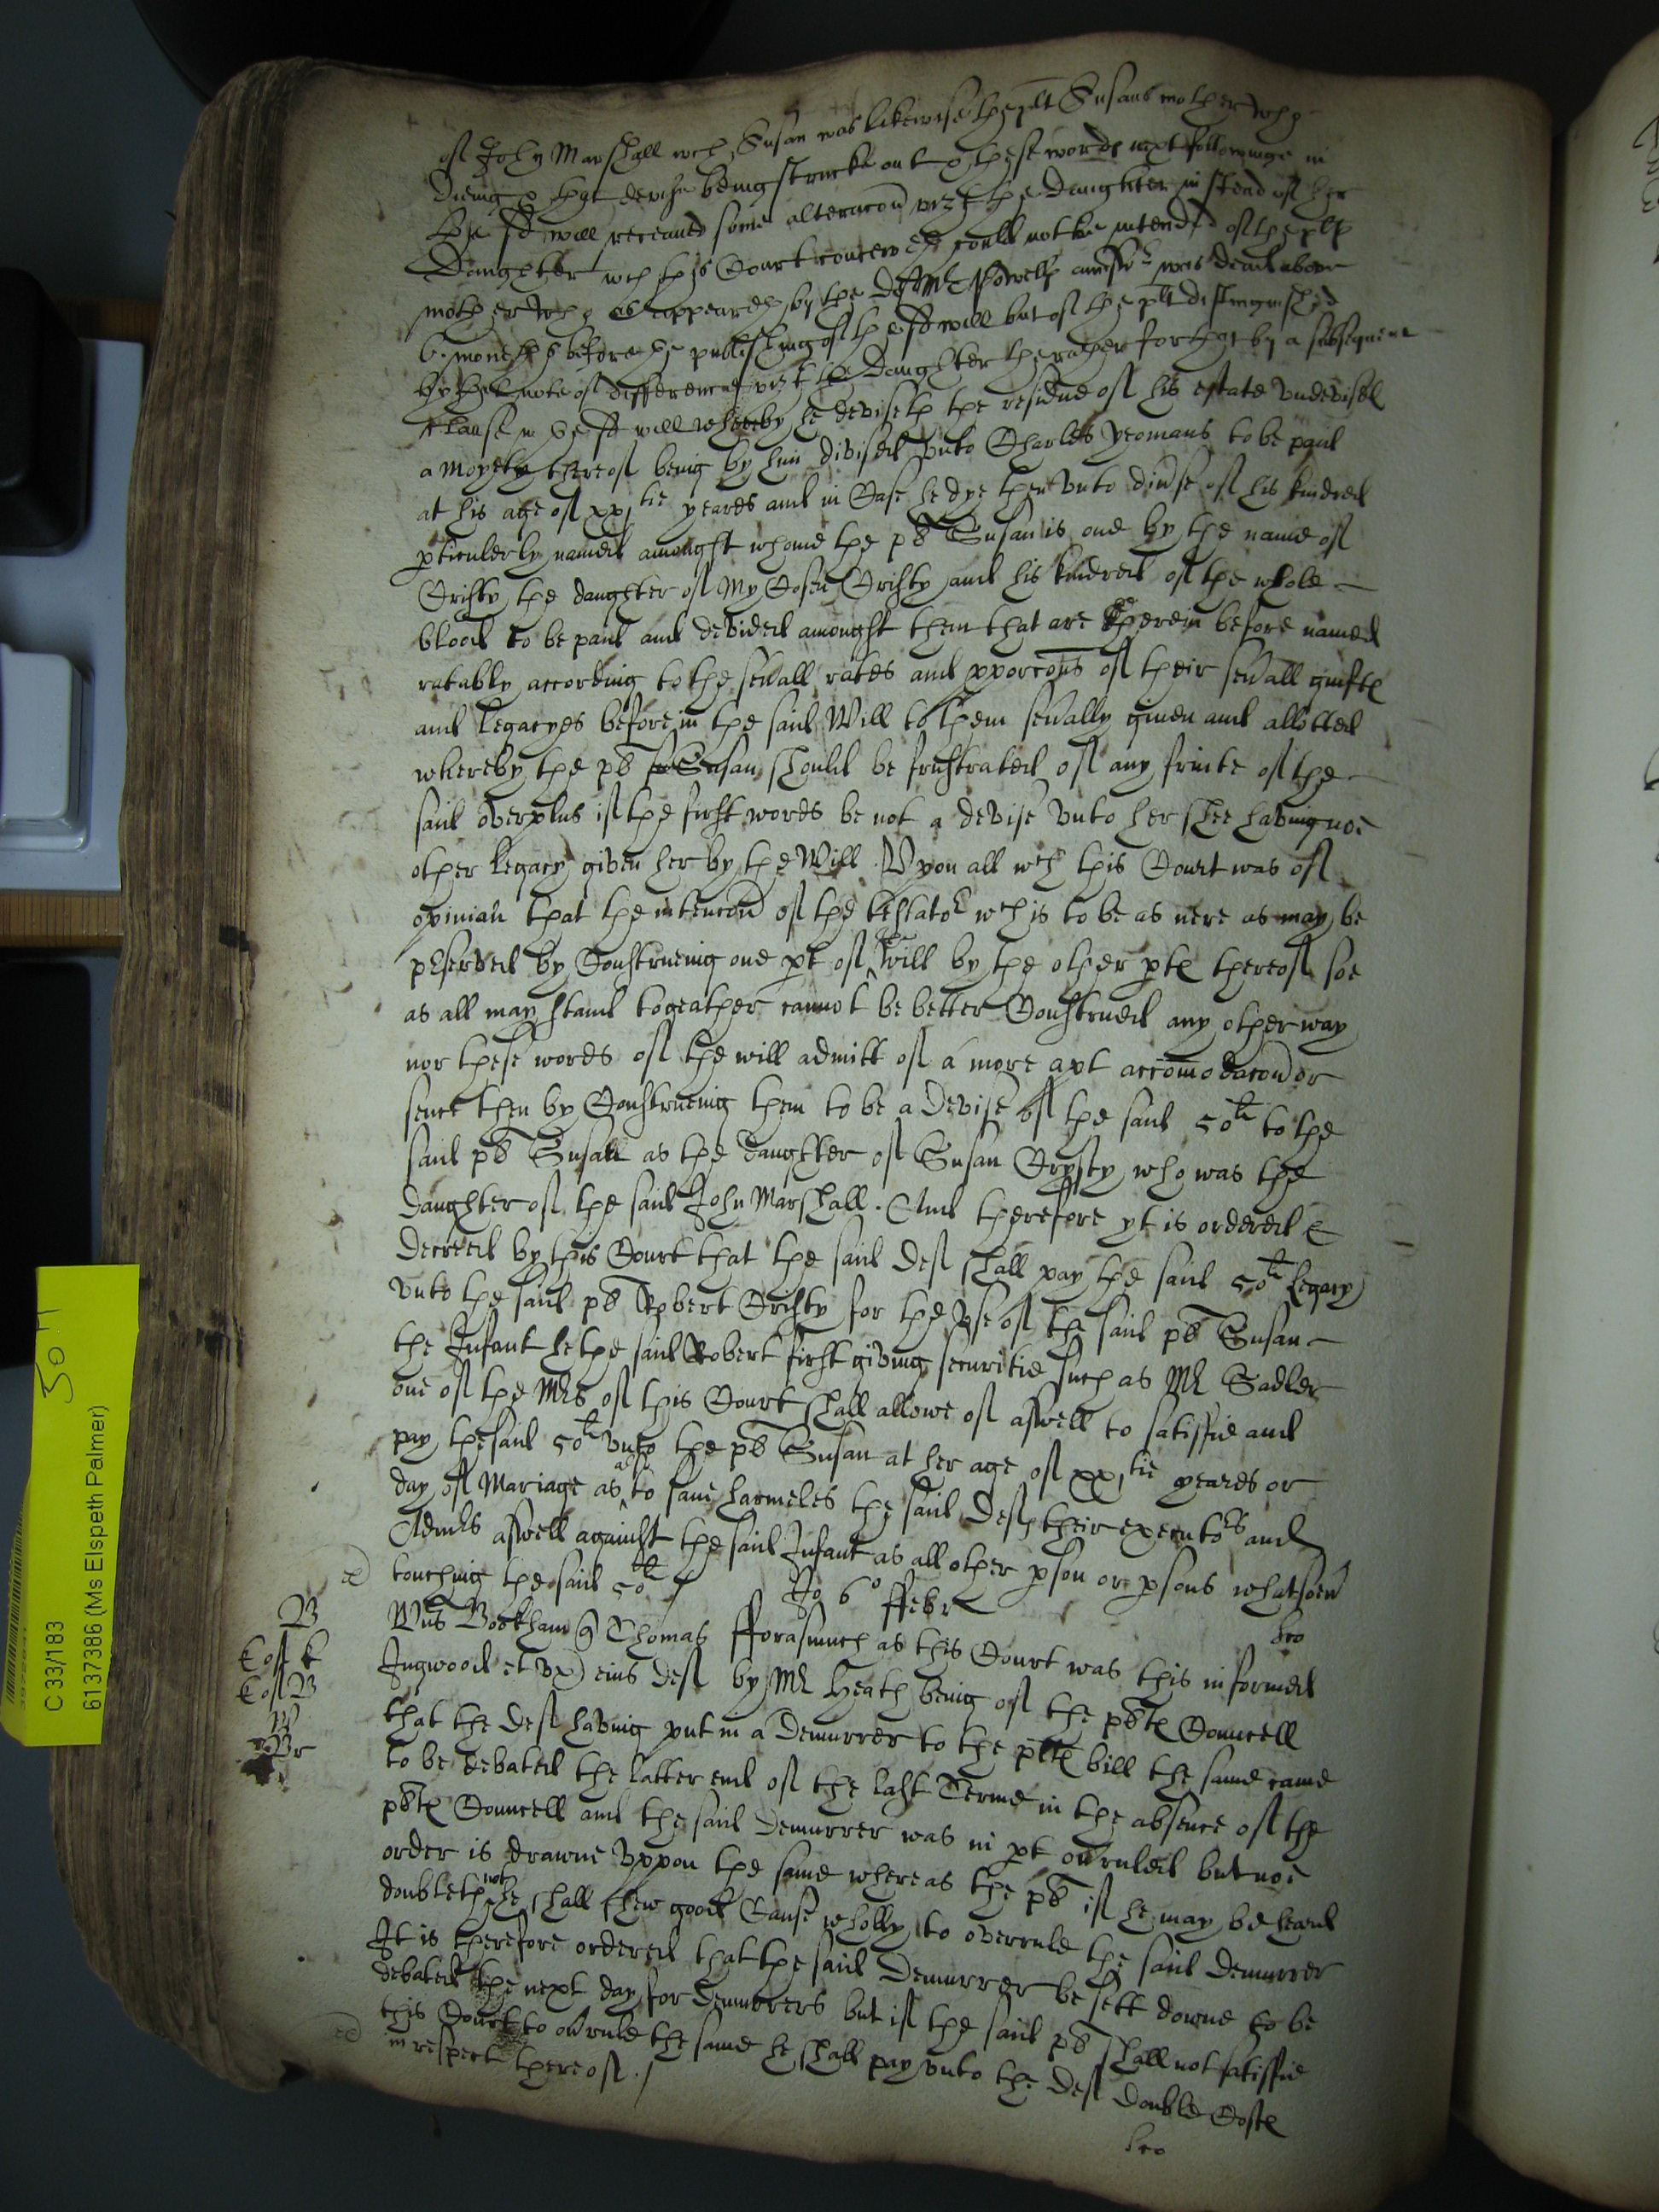 of John Marshall wch Susan was likewise the plt Susans mother who
dieing that devise being strucke out & these words next followinge in
the sd will receaved some alteracon vizt the Daughter in stead of her
Daughter wch this Court conceiveth could not be intended of the plts
mother who as appeareth by the deft Mr Powells answer was dead above
6 moneths before the publishing of the sd will but of the plt distinguished
by that note of difference vizt the Daughter the rather for that by a subsequent
clause in the sd will whereby he deviseth the residue of his estate undevised
a moyety thereof being by him divised unto Charles Yeomans to be paid
at his age of xxj tie yeares and in Case he dye then unto divse of his kindred
pticulerly named amongst whome the pl Susan is one by the name of
Cristy the daughter of my Cosen Cristy and his kindred of the whole
blood to be paid and devided amongst them that are therein before named
ratably according to the sevall rates and pporcons of their sevall guifts
and Legacyes before in the said Will to them sevally given and allotted
whereby the pl Susan should be frustrated of any fruite of the
said overplus if the first words be not a devise unto her shee having noe
other Legacy given her by the Will. Upon all wch this Court was of
opinion that the intencon of the testator wch is to be as nere as may be
pserved by Construeing one pt of the will by the other pts thereof soe
as all may stand togeather cannot be better Construed any other way
nor these words of the will admitt of a more apt accomodacon or
sence then by Construeing them to be a devise of the said 50li to the
said pl Susan as the daughter of Susan Crysty who was the
daughter of the said John Marshall. And therefore yt is ordered &
decreed by this Court that the said def shall pay the said 50li Legacy
unto the said pl Robert Cristy for the use of the said pl Susan
the Infant he the said Robert first giving securitie such as Mr Sadler
one of the Mrs of this Court shall allowe of aswell to satisfie and
pay the said 50li unto the pl Susan at her age of xxj tie yeares or
day of Mariage as also to save harmeles the said def their executors and
Admrs aswell against the said Infant as all other pson or psons whatsoev
touching the said 50li
Jo 6o ffebr
Wms Bockham q Thomas
Ingwood et ux eius def
fforasmuch as this Court was this informed
by Mr Heath being of the plts Councell
that the def having put in a demurrer to the plts bill the same came
to be debated the latter end of the last Terme in the absence of the
plts Councell and the said demurrer was in pt ovruled but noe
order is drawne uppon the same whereas the pl if he may be heard
doubteth not he shall shew good Cause wholly to overrule the said demurrer
It is therefore ordered that the said demurrer be sett downe to be
debated the next day for demurrers but if the said pl shall not satisfie
this Court to ovrule the same he shall pay unto the def double Costs
in respect thereof
C 33/183
6137386 (Ms Elspeth Palmer)